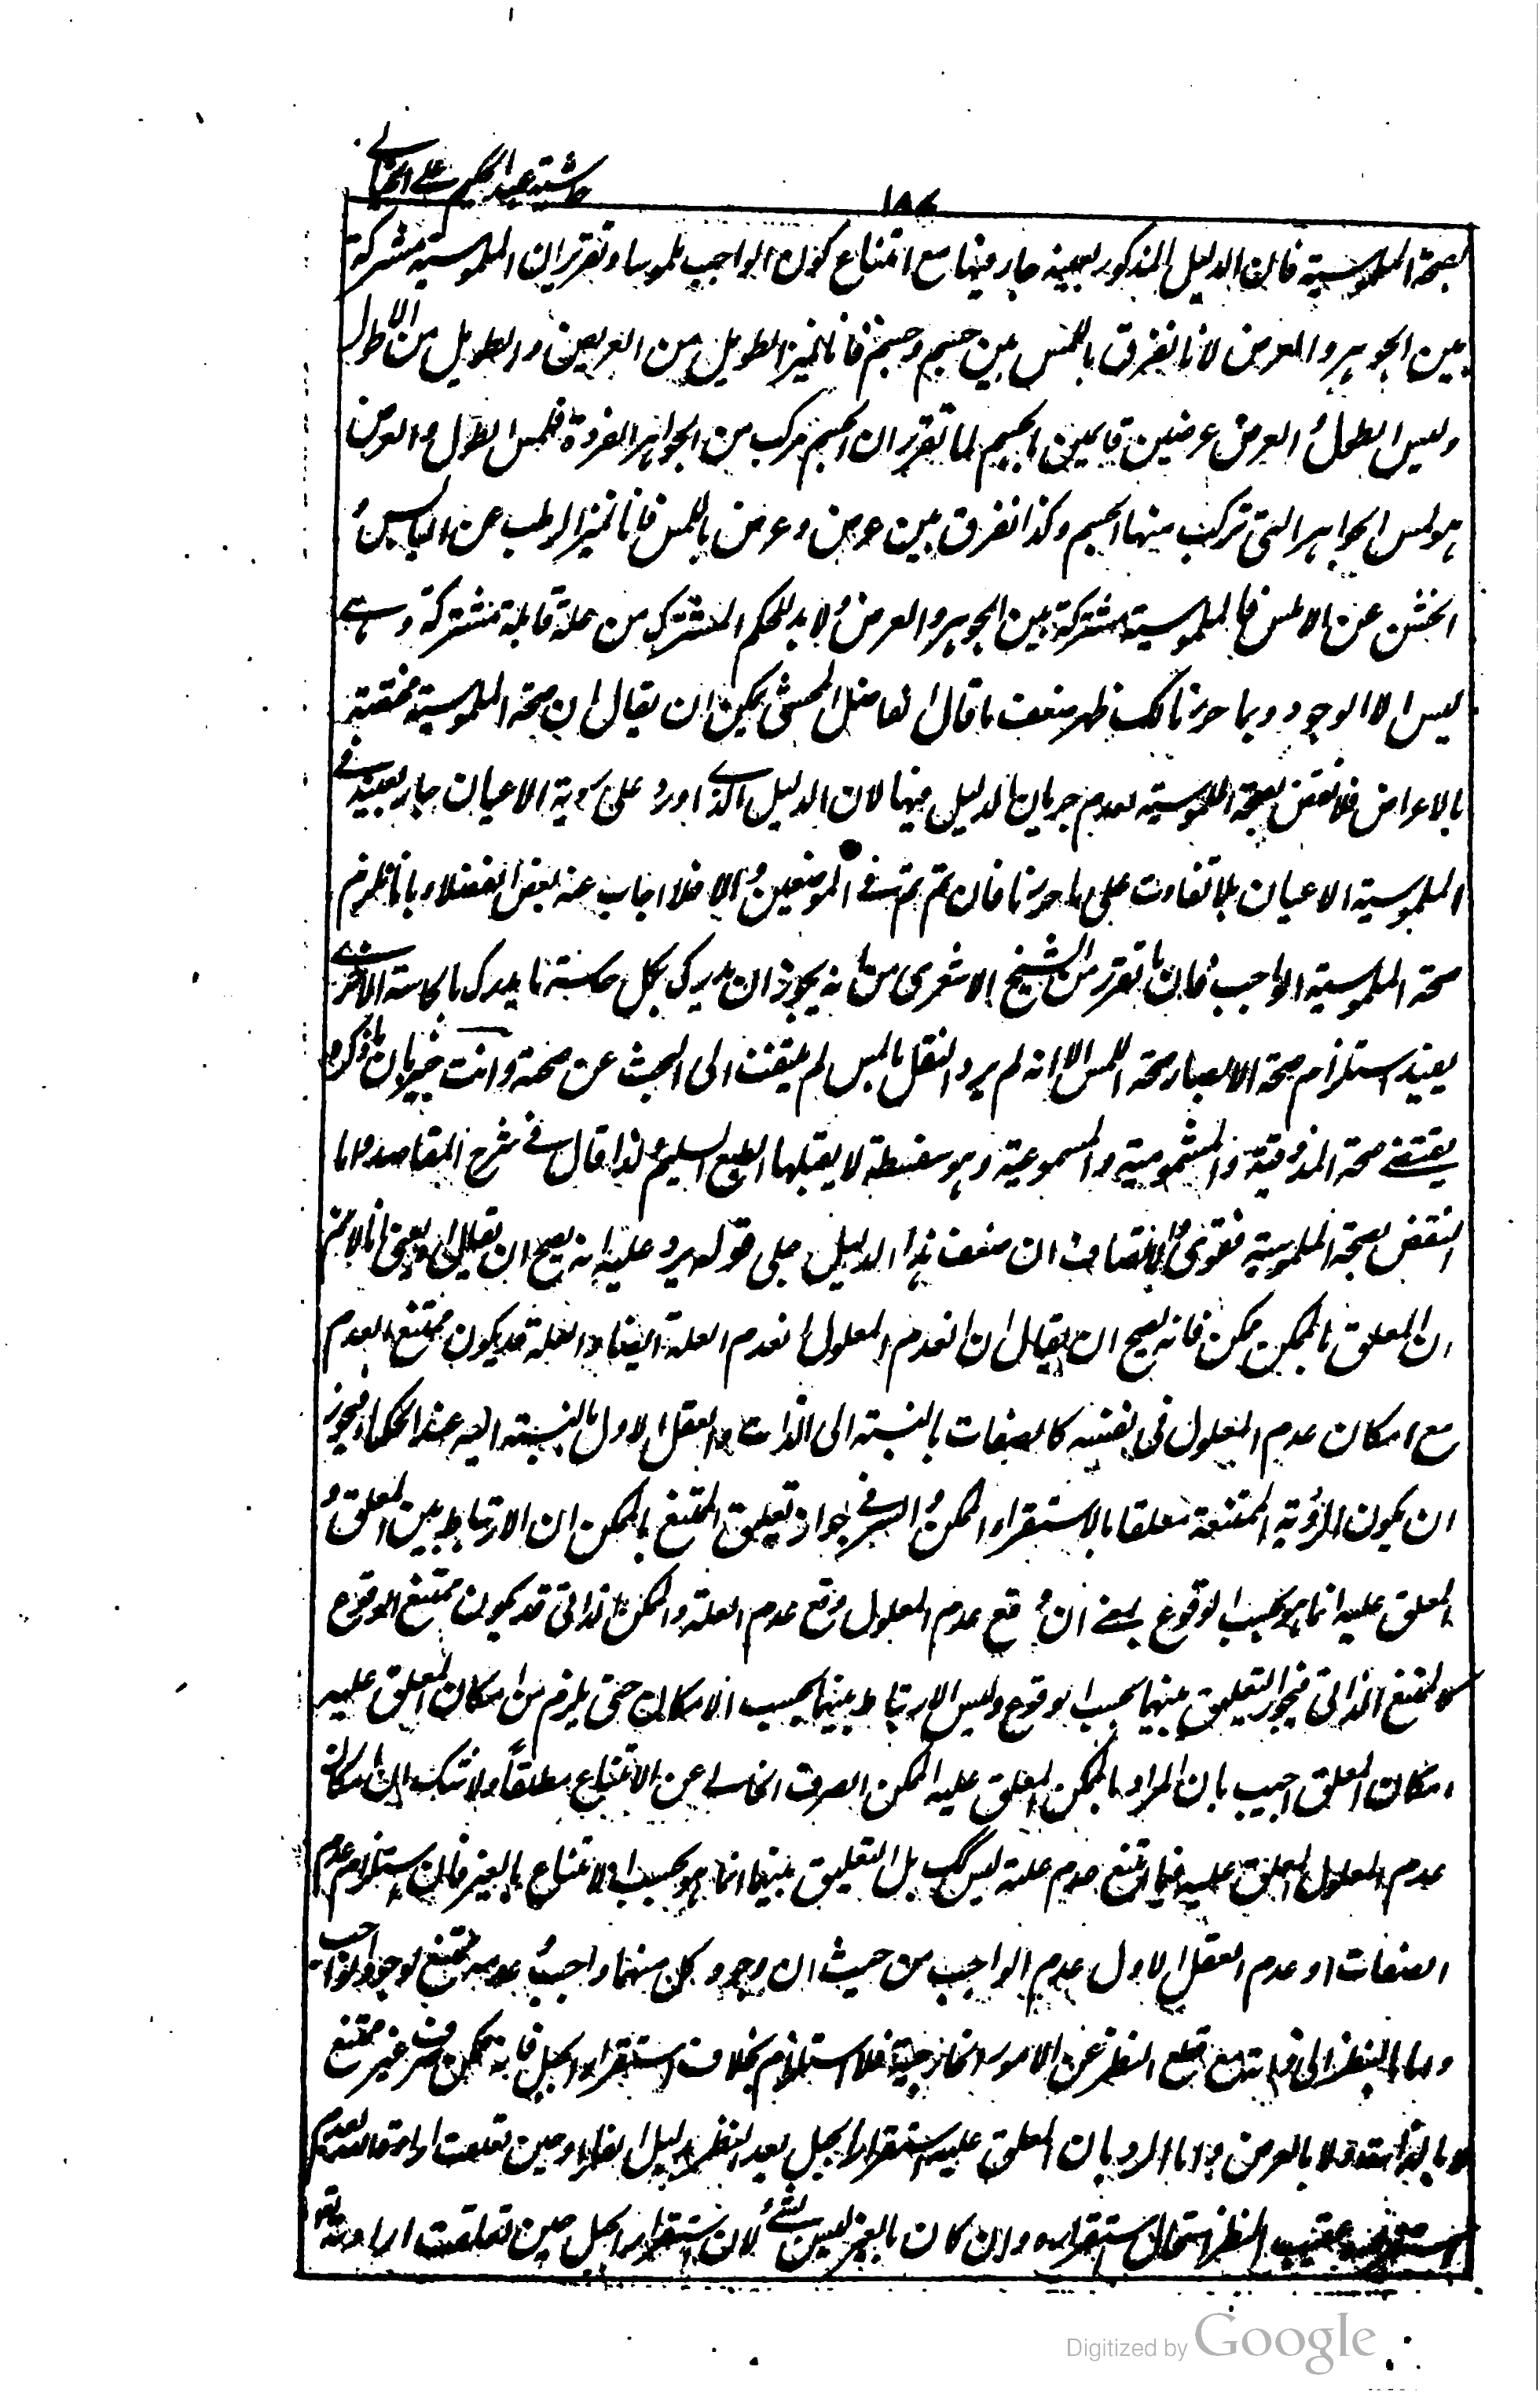 حاشية عبد الحكيم على الخيالى
١٨٧
بصحة الملموسية فان الدليل المذكور بعينه جار فيها مع امتناع كون الواجب ملموسا وتقريره ان الملموسية مشتركة
بين الجوهر والعرض لانا نفرق باللمس بين جسم وجسم فانا نميز الطويل من العريض والطويل من الاطول
وليس الطول والعرض عرضين قائمين بالجسم لما تقرر ان الجسم مركب من الجواهر الفردة فلمس الطول والعرض
هو لمس الجواهر التى تركب منها الجسم وكذا نفرق بين عرض وعرض باللمس فانا نميز الرطب عن اليابس و
الخشن عن الاملس فالملموسية مشتركة بين الجوهر والعرض ولا بد للحكم المشترك من علة قابلة مشتركة وهى
ليس الا الوجود وبما حررنا لك ظهر ضعف ما قال الفاضل المحشى يمكن ان يقال ان صحة الملموسية مختصة
بالاعراض فلا نقض بصحة الملموسية لعدم جريان الدليل فيها لان الدليل الذى اورد على رؤية الاعيان جار بعينه فى
الملموسية الاعيان بلا تفاوت على ما حررنا فان تم تم فى الموضعين والا فلا اجاب عنه بعض الفضلاء بانا نلتزم
صحة الملموسية الواجب فان ما تقرر من الشيخ الاشعرى من انه يجوز ان يدرك بكل حاسة ما يدرك بالحاسة الاخرى
يفيد استلزام صحة الابصار صحة اللمس الا انه لم يرد النقل بالمس لم يلتفت الى البحث عن صحته وانت خبير بان ما ذكره
يقتضى صحة المذوقية والمشمومية والمسموعية وهو سفسطة لا يقبلها الطبع السليم ولذا قال فى شرح المقاصد واما
النقض بصحة الملموسية فقوى والانصاف ان ضعف هذا الدليل جلى قوله يرد عليه انه يصح ان يقال اه يعنى انا لا نم
ان المعلق بالممكن ممكن فانه يصح ان يقال ان انعدم المعلول انعدم العلة ايضا والعلة قد يكون ممتنع العدم
مع امكان عدم المعلول فى نفسه كالصفات بالنسبة الى الذات والعقل الاول بالنسبة اليه عند الحكماء فيجوز
ان يكون الرؤية الممتنعة متعلقا بالاستقرار الممكن والسر فى جواز تعليق الممتنع بالممكن ان الارتباط بين المعلق و
المعلق عليه انما هو بحسب الوقوع بمعنى ان وقع عدم المعلول وقع عدم العلة والممكن الذاتى قد يكون ممتنع الوقوع
كالممتنع الذاتى فيجوز التعليق بينهما بحسب الوقوع وليس الارتباط بينهما بحسب الامكان حتى يلزم من امكان المعلق عليه
امكان المعلق اجيب بان المراد بالممكن المعلق عليه الممكن الصرف الخالى عن الامتناع مطلقاً ولا شك ان امكان
عدم المعلول المعلق عليه فيما امتنع عدم علته ليس كك بل التعليق بينهما انما هو بحسب الامتناع بالغير فان استلزام عدم
الصفات او عدم العقل الاول عدم الواجب من حيث ان وجود كل منهما واجب وعدمه ممتنع لوجود الواجب
واما بالنظر الى ذاته مع قطع النظر عن الامور الخارجية فلا استلزام بخلاف استقرار الجبل فانه ممكن صرف غير ممتنع
لا بالذات ولا بالعرض واما الرد بان المعلق عليه استقرار الجبل بعد النظر بدليل الفاء وحين تعلقت ارادته تعالى بعدم
استقراره عقيب النظر استحال استقراره وان كان بالغير ليس بشىء لان استقرار الجبل حين تعلقت ارادته تع